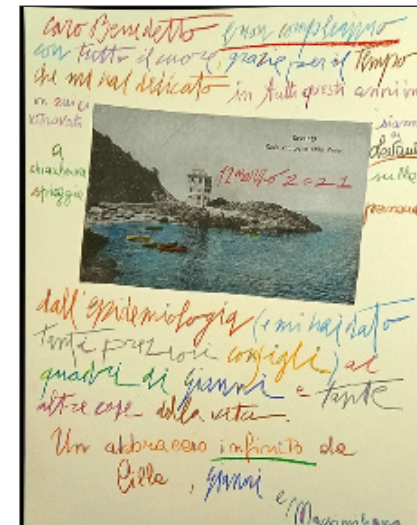 caro Benedetto buon compleanno
con tutto il cuore, grazie per il tempo
che mi hai dedicato in tutti questi anni in
cui ci siamo
ritrovati a Levanto
a
chiacchierare sulla
spiaggia
12 marzo 2021
dall'epidemiologia (e mi hai dato
tanti preziosi consigli) ai
quadri di Gianni e tante
altre cose della vita.
Un abbraccio infinito da
Lilla, Gianni
e Massimiliano